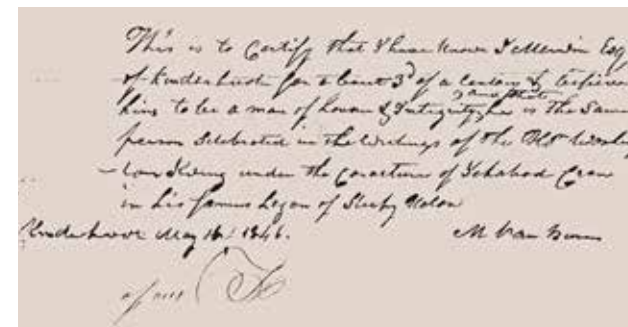 This is to Certify that I have known J Merwin Esq
of Kinderhook for about 3d of a Century & believe
him to be a man of honour & Integrity & and that he is the Same
person Celebrated in the writings of the Hon Washing
-ton Irving under the Caracture of Ichabod Crane
in his famous Legon of Sleepy Holow
Kinderhook May 16 1846. M Van Buren